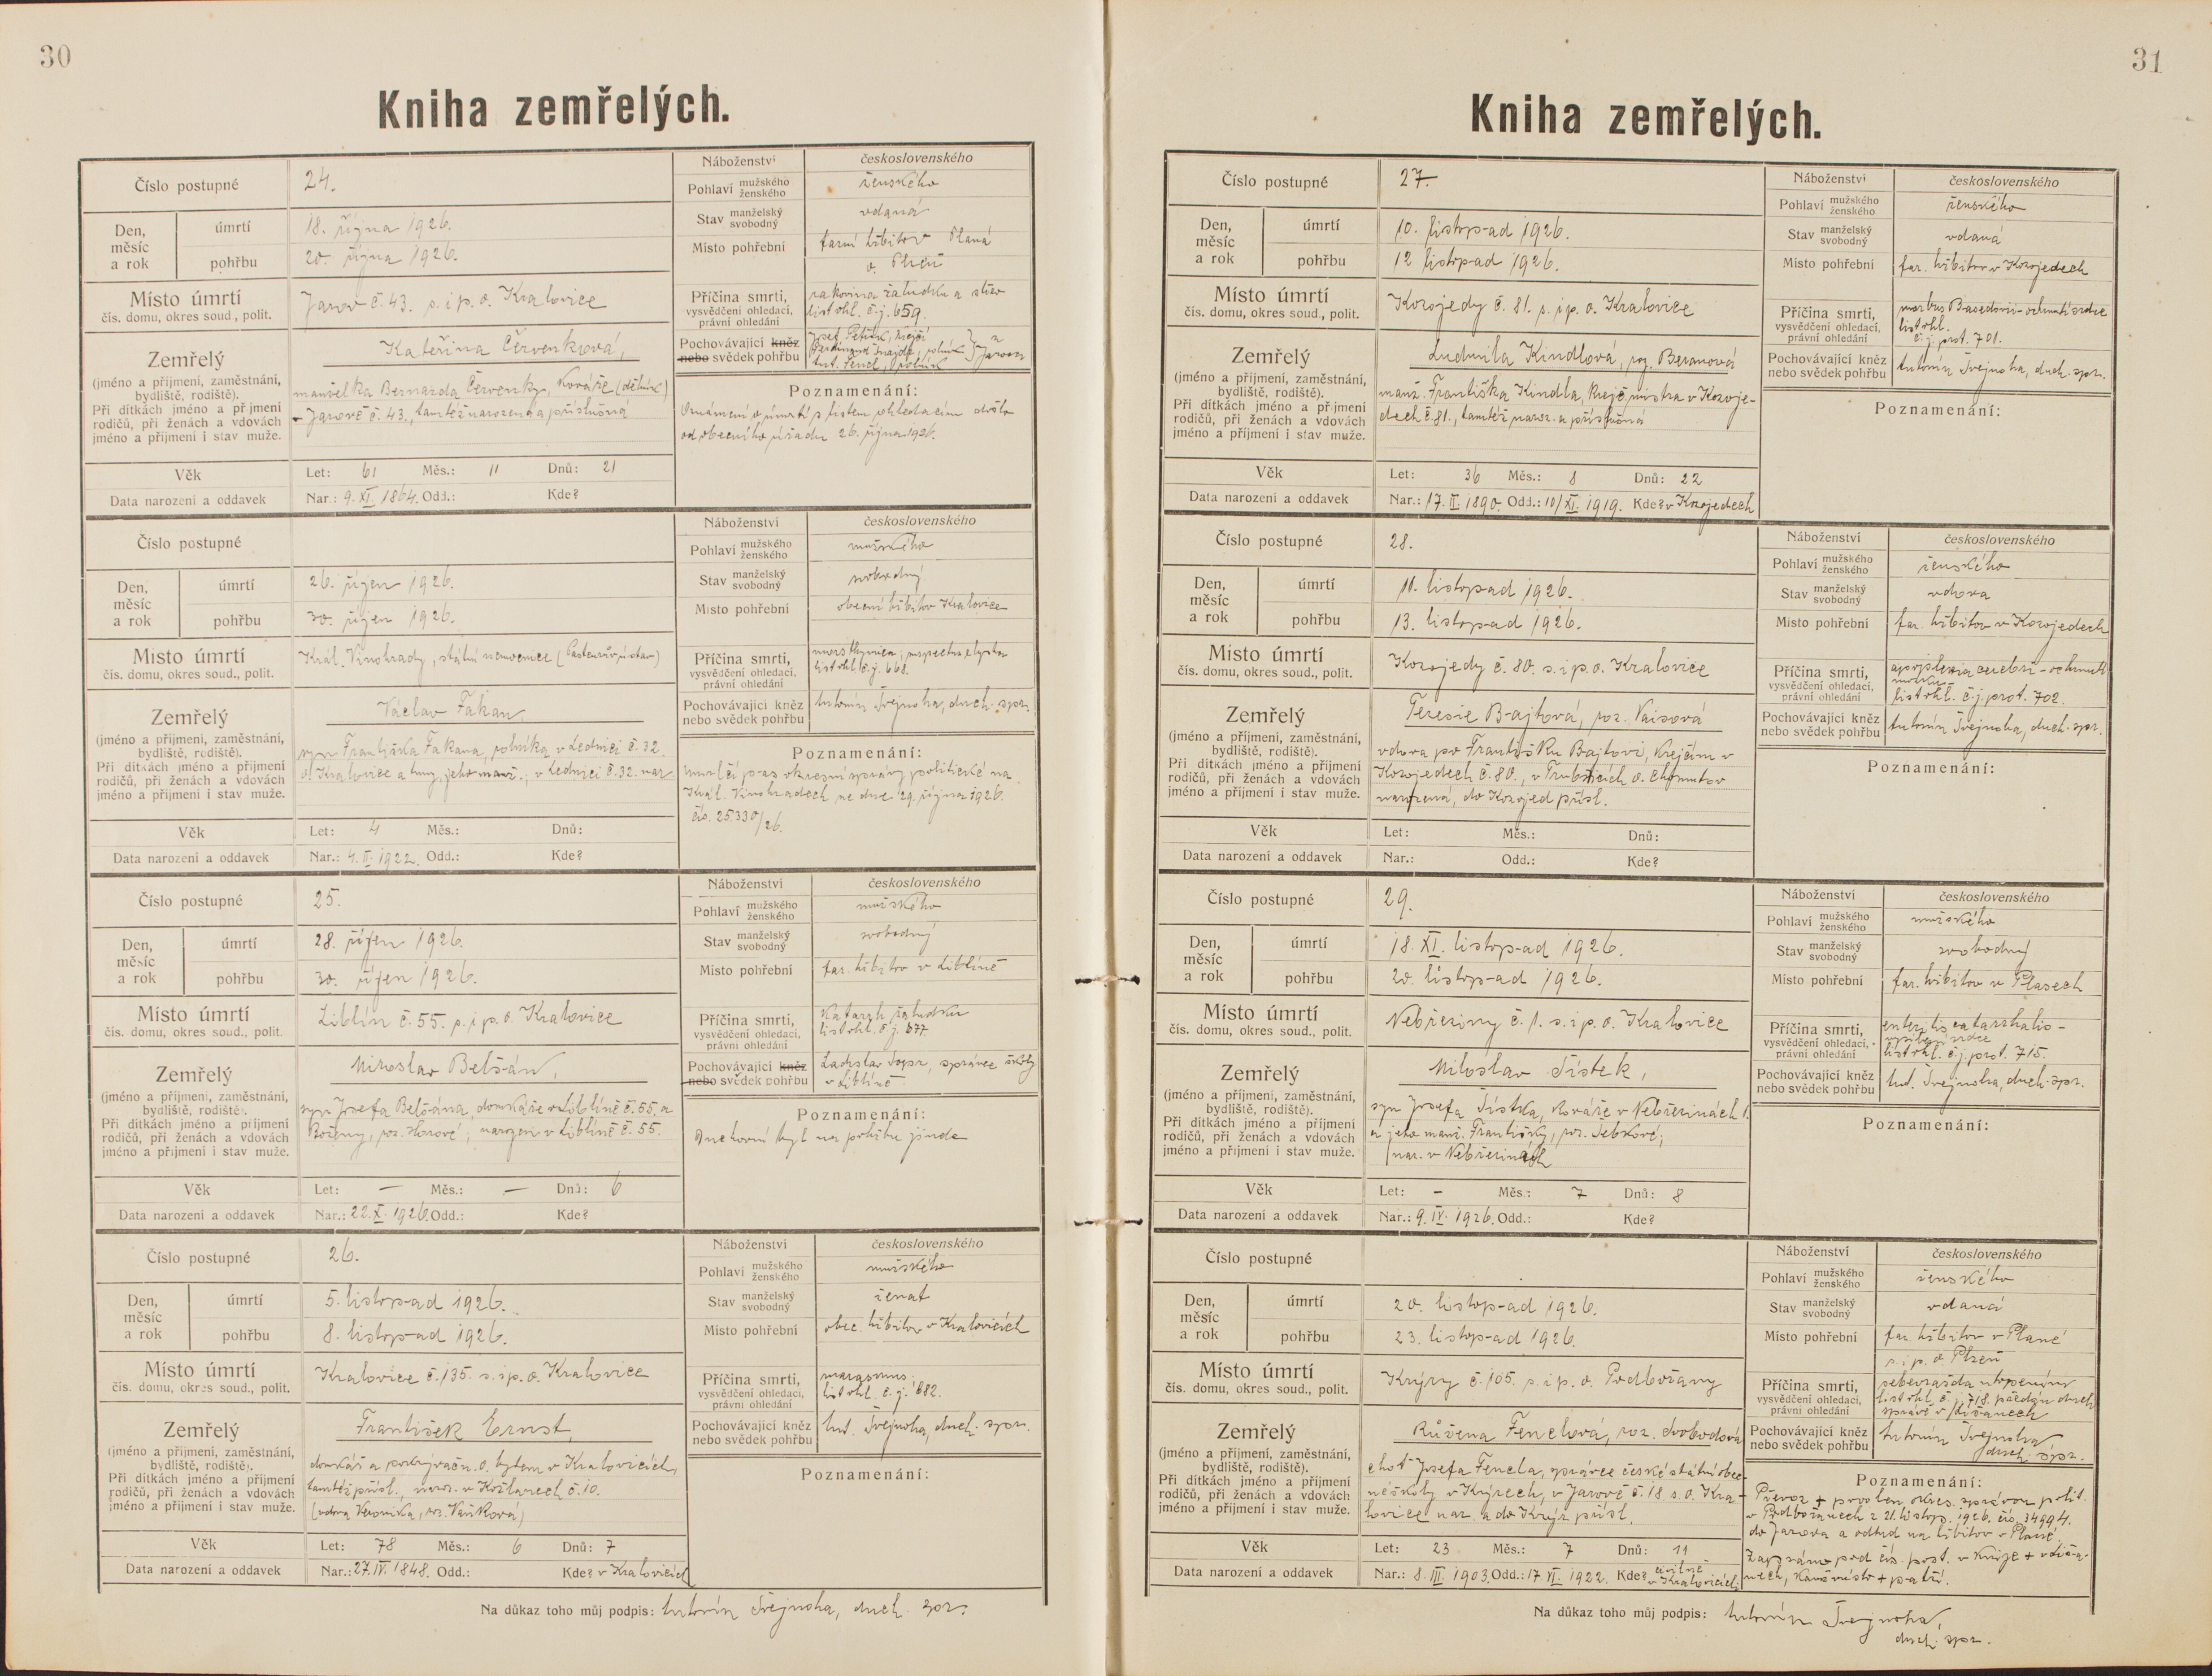 30
Kniha zemřelých.
Číslo postupné 24.
Náboženství československého
Pohlaví mužského ženského ženského
Den, měsíc a rok úmrtí 18. října 1926.
Stav manželský svobodný vdaná
pohřbu 20. října 1926.
Místo pohřební farní hřbitov Planá
o. Plzeň
Místo úmrtí Jarov č. 43. s. i p. o. Kralovice
čís. domu, okres soud., polit.
Příčina smrti, rakovina žaludku a střev
vysvědčení ohledací, list ohl. č. j. 659.
právní ohledání
Zemřelý Kateřina Červenková,
Pochovávající kněz nebo svědek pohřbu Josef Petřík, krejčí
Ferdinand Šnajdr, rolník z Jarova
Ant. Fencl, rolník
(jméno a příjmení, zaměstnání, bydliště, rodiště).
Při dítkách jméno a příjmení rodičů, při ženách a vdovách jméno a příjmení i stav muže.
manželka Bernarda Červenky, kováře (dělník)
v Jarově č. 43., tamtéž narozená a příslušná
Poznamenání:
Oznámení o úmrtí s listem ohledacím došlo
od obecního úřadu 26. října 1926.
Věk Let: 61 Měs.: 11 Dnů: 21
Data narození a oddavek Nar.: 9. XI. 1864. Odd.: Kde?
Číslo postupné
Náboženství československého
Pohlaví mužského ženského mužského
Den, měsíc a rok úmrtí 26. říjen 1926.
Stav manželský svobodný svobodný
pohřbu 30. říjen 1926.
Místo pohřební obecní hřbitov Kralovice
Místo úmrtí Král. Vinohrady, státní nemocnice (Pasteurův ústav)
čís. domu, okres soud., polit.
Příčina smrti,
vysvědčení ohledací, list ohl. č. j. 668.
právní ohledání
Zemřelý Václav Fakan,
Pochovávající kněz nebo svědek pohřbu Antonín Švejnoha, duch. spr.
(jméno a příjmení, zaměstnání, bydliště, rodiště).
Při dítkách jméno a příjmení rodičů, při ženách a vdovách jméno a příjmení i stav muže.
syn Františka Fakana, rolníka v Lednici č. 32.
o. Kralovice a Anny, jeho manž.; v Lednici č. 32. nar.
Poznamenání:
Umrlčí pas okresní správy politické na
Král. Vinohradech ze dne 29. října 1926.
čís. 25.330/26.
Věk Let: 4 Měs.: Dnů:
Data narození a oddavek Nar.: 4. II. 1922. Odd.: Kde?
Číslo postupné 25.
Náboženství československého
Pohlaví mužského ženského mužského
Den, měsíc a rok úmrtí 28. říjen 1926.
Stav manželský svobodný svobodný
pohřbu 30. říjen 1926.
Místo pohřební far. hřbitov v Liblíně
Místo úmrtí Liblín č. 55. s. i p. o. Kralovice
čís. domu, okres soud., polit.
Příčina smrti, katarrh žaludku
vysvědčení ohledací, list ohl. č. j. 677.
právní ohledání
Zemřelý Miroslav Belšán,
Pochovávající kněz nebo svědek pohřbu Ladislav, správce školy
v Liblíně.
(jméno a příjmení, zaměstnání, bydliště, rodiště).
Při dítkách jméno a příjmení rodičů, při ženách a vdovách jméno a příjmení i stav muže.
syn Josefa Belšána, domkáře v Liblíně č. 55. a
Boženy, roz.; narozen v Liblíně č. 55.
Poznamenání:
Duchovní byl na pohřbu jinde
Věk Let: — Měs.: — Dnů: 6
Data narození a oddavek Nar.: 22. X. 1926. Odd.: Kde?
Číslo postupné 26.
Náboženství československého
Pohlaví mužského ženského mužského
Den, měsíc a rok úmrtí 5. listopad 1926.
Stav manželský svobodný ženat
pohřbu 8. listopad 1926.
Místo pohřební obec. hřbitov v Kralovicích
Místo úmrtí Kralovice č. 135. s. i p. o. Kralovice
čís. domu, okres soud., polit.
Příčina smrti, marasmus;
vysvědčení ohledací, list ohl. č. j. 682.
právní ohledání
Zemřelý František Ernst,
Pochovávající kněz nebo svědek pohřbu Ant. Švejnoha, duch. spr.
(jméno a příjmení, zaměstnání, bydliště, rodiště).
Při dítkách jméno a příjmení rodičů, při ženách a vdovách jméno a příjmení i stav muže.
domkář a, bytem v Kralovicích,
tamtéž přísl., naroz. v Kožlanech č. 10.
(vdova Veronika, roz. Vaňková)
Poznamenání:
Věk Let: 78 Měs.: 6 Dnů: 7
Data narození a oddavek Nar.: 27. IV. 1848. Odd.: Kde? v Kralovicích
Na důkaz toho můj podpis: Antonín Švejnoha, duch. spr.
31
Kniha zemřelých.
Číslo postupné 27.
Náboženství československého
Pohlaví mužského ženského ženského
Den, měsíc a rok úmrtí 10. listopad 1926.
Stav manželský svobodný vdaná
pohřbu 12 listopad 1926.
Místo pohřební far. hřbitov v Kozojedech
Místo úmrtí Kozojedy č. 81. s. i p. o. Kralovice
čís. domu, okres soud., polit.
Příčina smrti, morbus Basedovii - ochrnutí srdce
vysvědčení ohledací, list ohl.
právní ohledání č. j. prot. 701.
Zemřelý Ludmila Kindlová, roz. Beranová
Pochovávající kněz nebo svědek pohřbu Antonín Švejnoha, duch. spr.
(jméno a příjmení, zaměstnání, bydliště, rodiště).
Při dítkách jméno a příjmení rodičů, při ženách a vdovách jméno a příjmení i stav muže.
manž. Františka Kindla, krejč. mistra v Kozoje-
dech č. 81., tamtéž naroz. a příslušná
Poznamenání:
Věk Let: 36 Měs.: 8 Dnů: 22
Data narození a oddavek Nar.: 17. II. 1890. Odd.: 10/XI. 1919. Kde? v Kozojedech
Číslo postupné 28.
Náboženství československého
Pohlaví mužského ženského ženského
Den, měsíc a rok úmrtí 11. listopad 1926.
Stav manželský svobodný vdova
pohřbu 13. listopad 1926.
Místo pohřební far. hřbitov v Kozojedech
Místo úmrtí Kozojedy č. 80. s. i p. o. Kralovice
čís. domu, okres soud., polit.
Příčina smrti, apoplexia cerebri - ochrnutí
mozku
vysvědčení ohledací, list ohl. č. j. prot. 702.
právní ohledání
Zemřelý Terezie Bajtová, roz. Vaisová
Pochovávající kněz nebo svědek pohřbu Antonín Švejnoha, duch. spr.
(jméno a příjmení, zaměstnání, bydliště, rodiště).
Při dítkách jméno a příjmení rodičů, při ženách a vdovách jméno a příjmení i stav muže.
vdova po Františku Bajtovi, krejčím v
Kozojedech č. 80., v o. Chomutov
narozená, do Kozojed přísl.
Poznamenání:
Věk Let: Měs.: Dnů:
Data narození a oddavek Nar.: Odd.: Kde?
Číslo postupné 29.
Náboženství československého
Pohlaví mužského ženského mužského
Den, měsíc a rok úmrtí 18. XI. listopad 1926.
Stav manželský svobodný svobodný
pohřbu 20. listopad 1926.
Místo pohřební far. hřbitov v Plasech
Místo úmrtí Nebřeziny č. 1. s. i p. o. Kralovice
čís. domu, okres soud., polit.
Příčina smrti, enteritis catarrhalis -
srdce
vysvědčení ohledací, list ohl. č. j. prot. 715.
právní ohledání
Zemřelý Miloslav Šístek,
Pochovávající kněz nebo svědek pohřbu Ant. Švejnoha, duch. spr.
(jméno a příjmení, zaměstnání, bydliště, rodiště).
Při dítkách jméno a příjmení rodičů, při ženách a vdovách jméno a příjmení i stav muže.
syn Josefa Šístka, kováře v Nebřezinách 1.
a jeho manž. Františky, roz. Šebkové;
nar. v Nebřezinách
Poznamenání:
Věk Let: - Měs.: 7 Dnů: 8
Data narození a oddavek Nar.: 9. IV. 1926. Odd.: Kde?
Číslo postupné
Náboženství československého
Pohlaví mužského ženského ženského
Den, měsíc a rok úmrtí 20. listopad 1926.
Stav manželský svobodný vdaná
pohřbu 23. listopad 1926.
Místo pohřební far. hřbitov v Plané
s. i p. o. Plzeň
Místo úmrtí Kryry č. 105. s. i p. o. Podbořany
čís. domu, okres soud., polit.
Příčina smrti, sebevražda utopením
vysvědčení ohledací, list ohl. č. j. 718. předán duch.
právní ohledání správě v
Zemřelý Růžena Fenclová, roz. Svobodová
Pochovávající kněz nebo svědek pohřbu Antonín Švejnoha
duch. spr.
(jméno a příjmení, zaměstnání, bydliště, rodiště).
Při dítkách jméno a příjmení rodičů, při ženách a vdovách jméno a příjmení i stav muže.
choť Josefa Fencla, správce české státní obec-
né školy v Kryrech, v Jarově č. 18 s. o. Kra-
lovice nar. a do Kryr přísl.
Poznamenání:
Převoz + povolen okres. správou polit.
v Podbořanech z 21. listop. 1926. čís. 34994.
do Jarova a odtud na hřbitov v Plané.
Zapsáno pod čís. post. v knize +
nech, kamž místo + patří.
Věk Let: 23 Měs.: 7 Dnů: 11
Data narození a oddavek Nar.: 8. III. 1903. Odd.: 17 VI. 1922. Kde? civilně
v Kralovicích
Na důkaz toho můj podpis: Antonín Švejnoha
duch. spr.